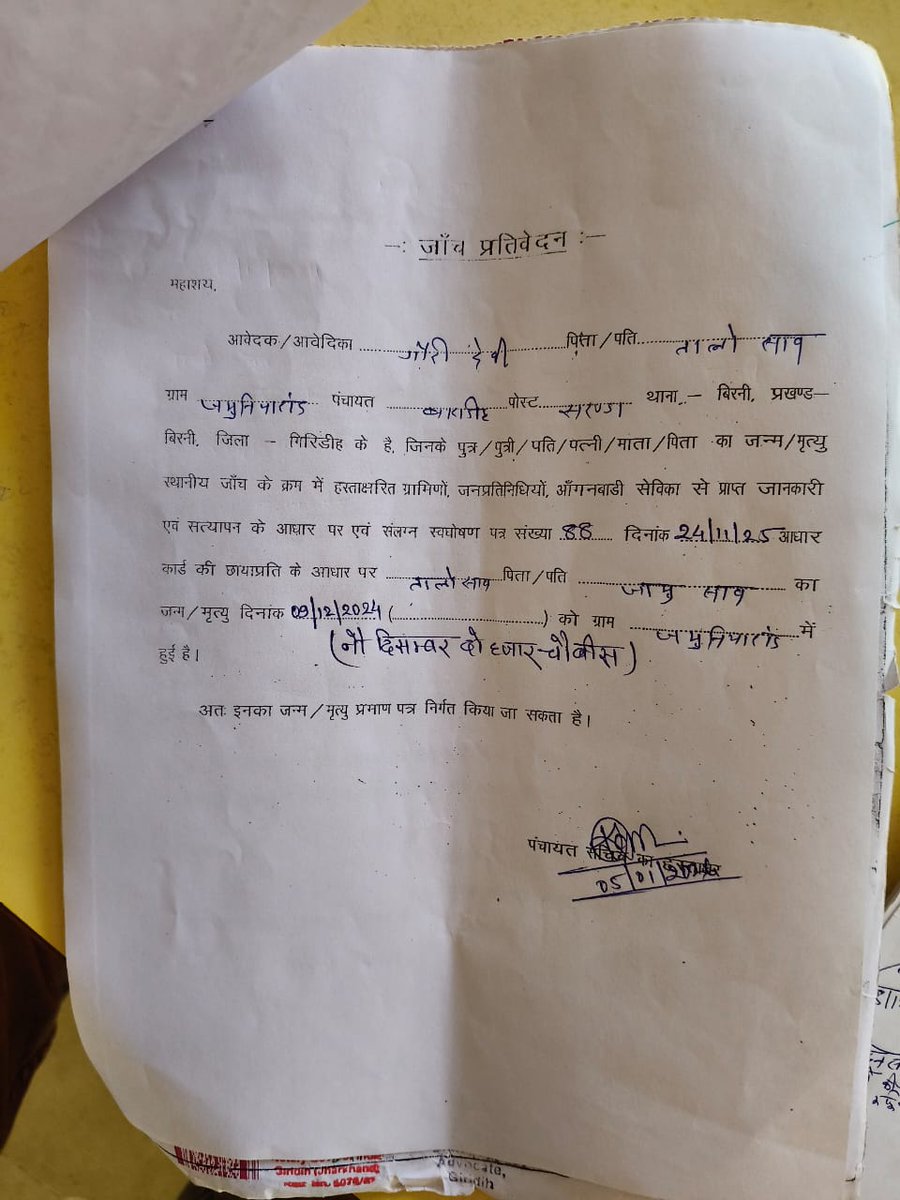 -: जाँच प्रतिवेदन :-
महाशय,
आवेदक/आवेदिका ..... गौरी देवी ..... पिता/पति..... तालो साव
ग्राम जमुनियाटांड पंचायत ..... पोस्ट..... थाना,– बिरनी, प्रखण्ड–
बिरनी, जिला – गिरिडीह के है, जिनके पुत्र/पुत्री/पति/पत्नी/माता/पिता का जन्म/मृत्यु
स्थानीय जाँच के क्रम में हस्ताक्षरित ग्रामिणों, जनप्रतिनिधियों, आँगनबाडी सेविका से प्राप्त जानकारी
एवं सत्यापन के आधार पर एवं संलग्न स्वघोषण पत्र संख्या .88..... दिनांक 24/11/25 आधार
कार्ड की छायाप्रति के आधार पर ..... तालो साव पिता/पति ..... साव का
जन्म/मृत्यु दिनांक 09/12/2024 (..............................) को ग्राम ..... जमुनियाटांड में
(नौ दिसम्बर दो हजार चौबीस)
हुई है।
अतः इनका जन्म/मृत्यु प्रमाण पत्र निर्गत किया जा सकता है।
पंचायत सचिव का
05/01/
Giridih (Jharkhand)
Advocate,
Giridih